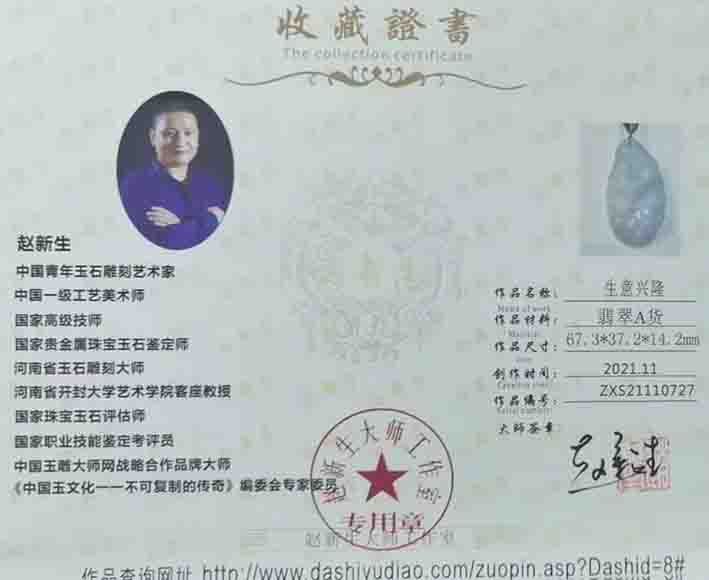 收藏證書
The collection certificate
赵新生
中国青年玉石雕刻艺术家
中国一级工艺美术师
国家高级技师
国家贵金属珠宝玉石鉴定师
河南省玉石雕刻大师
河南省开封大学艺术学院客座教授
国家珠宝玉石评估师
国家职业技能鉴定考评员
中国玉雕大师网战略合作品牌大师
《中国玉文化一一不可复制的传奇》编委会专家委员
作品名称: 生意兴隆
Name of work
作品材料: 翡翠A货
Material
作品尺寸: 67.3*37.2*14.2mm
Size
创作时间: 2021.11
Creation time
作品编号: ZXS21110727
Serial number
大师签章:
赵新生大师工作室
专用章
赵新生大师工作室
作品查询网址 http://www.dashiyudiao.com/zuopin.asp?Dashid=8#